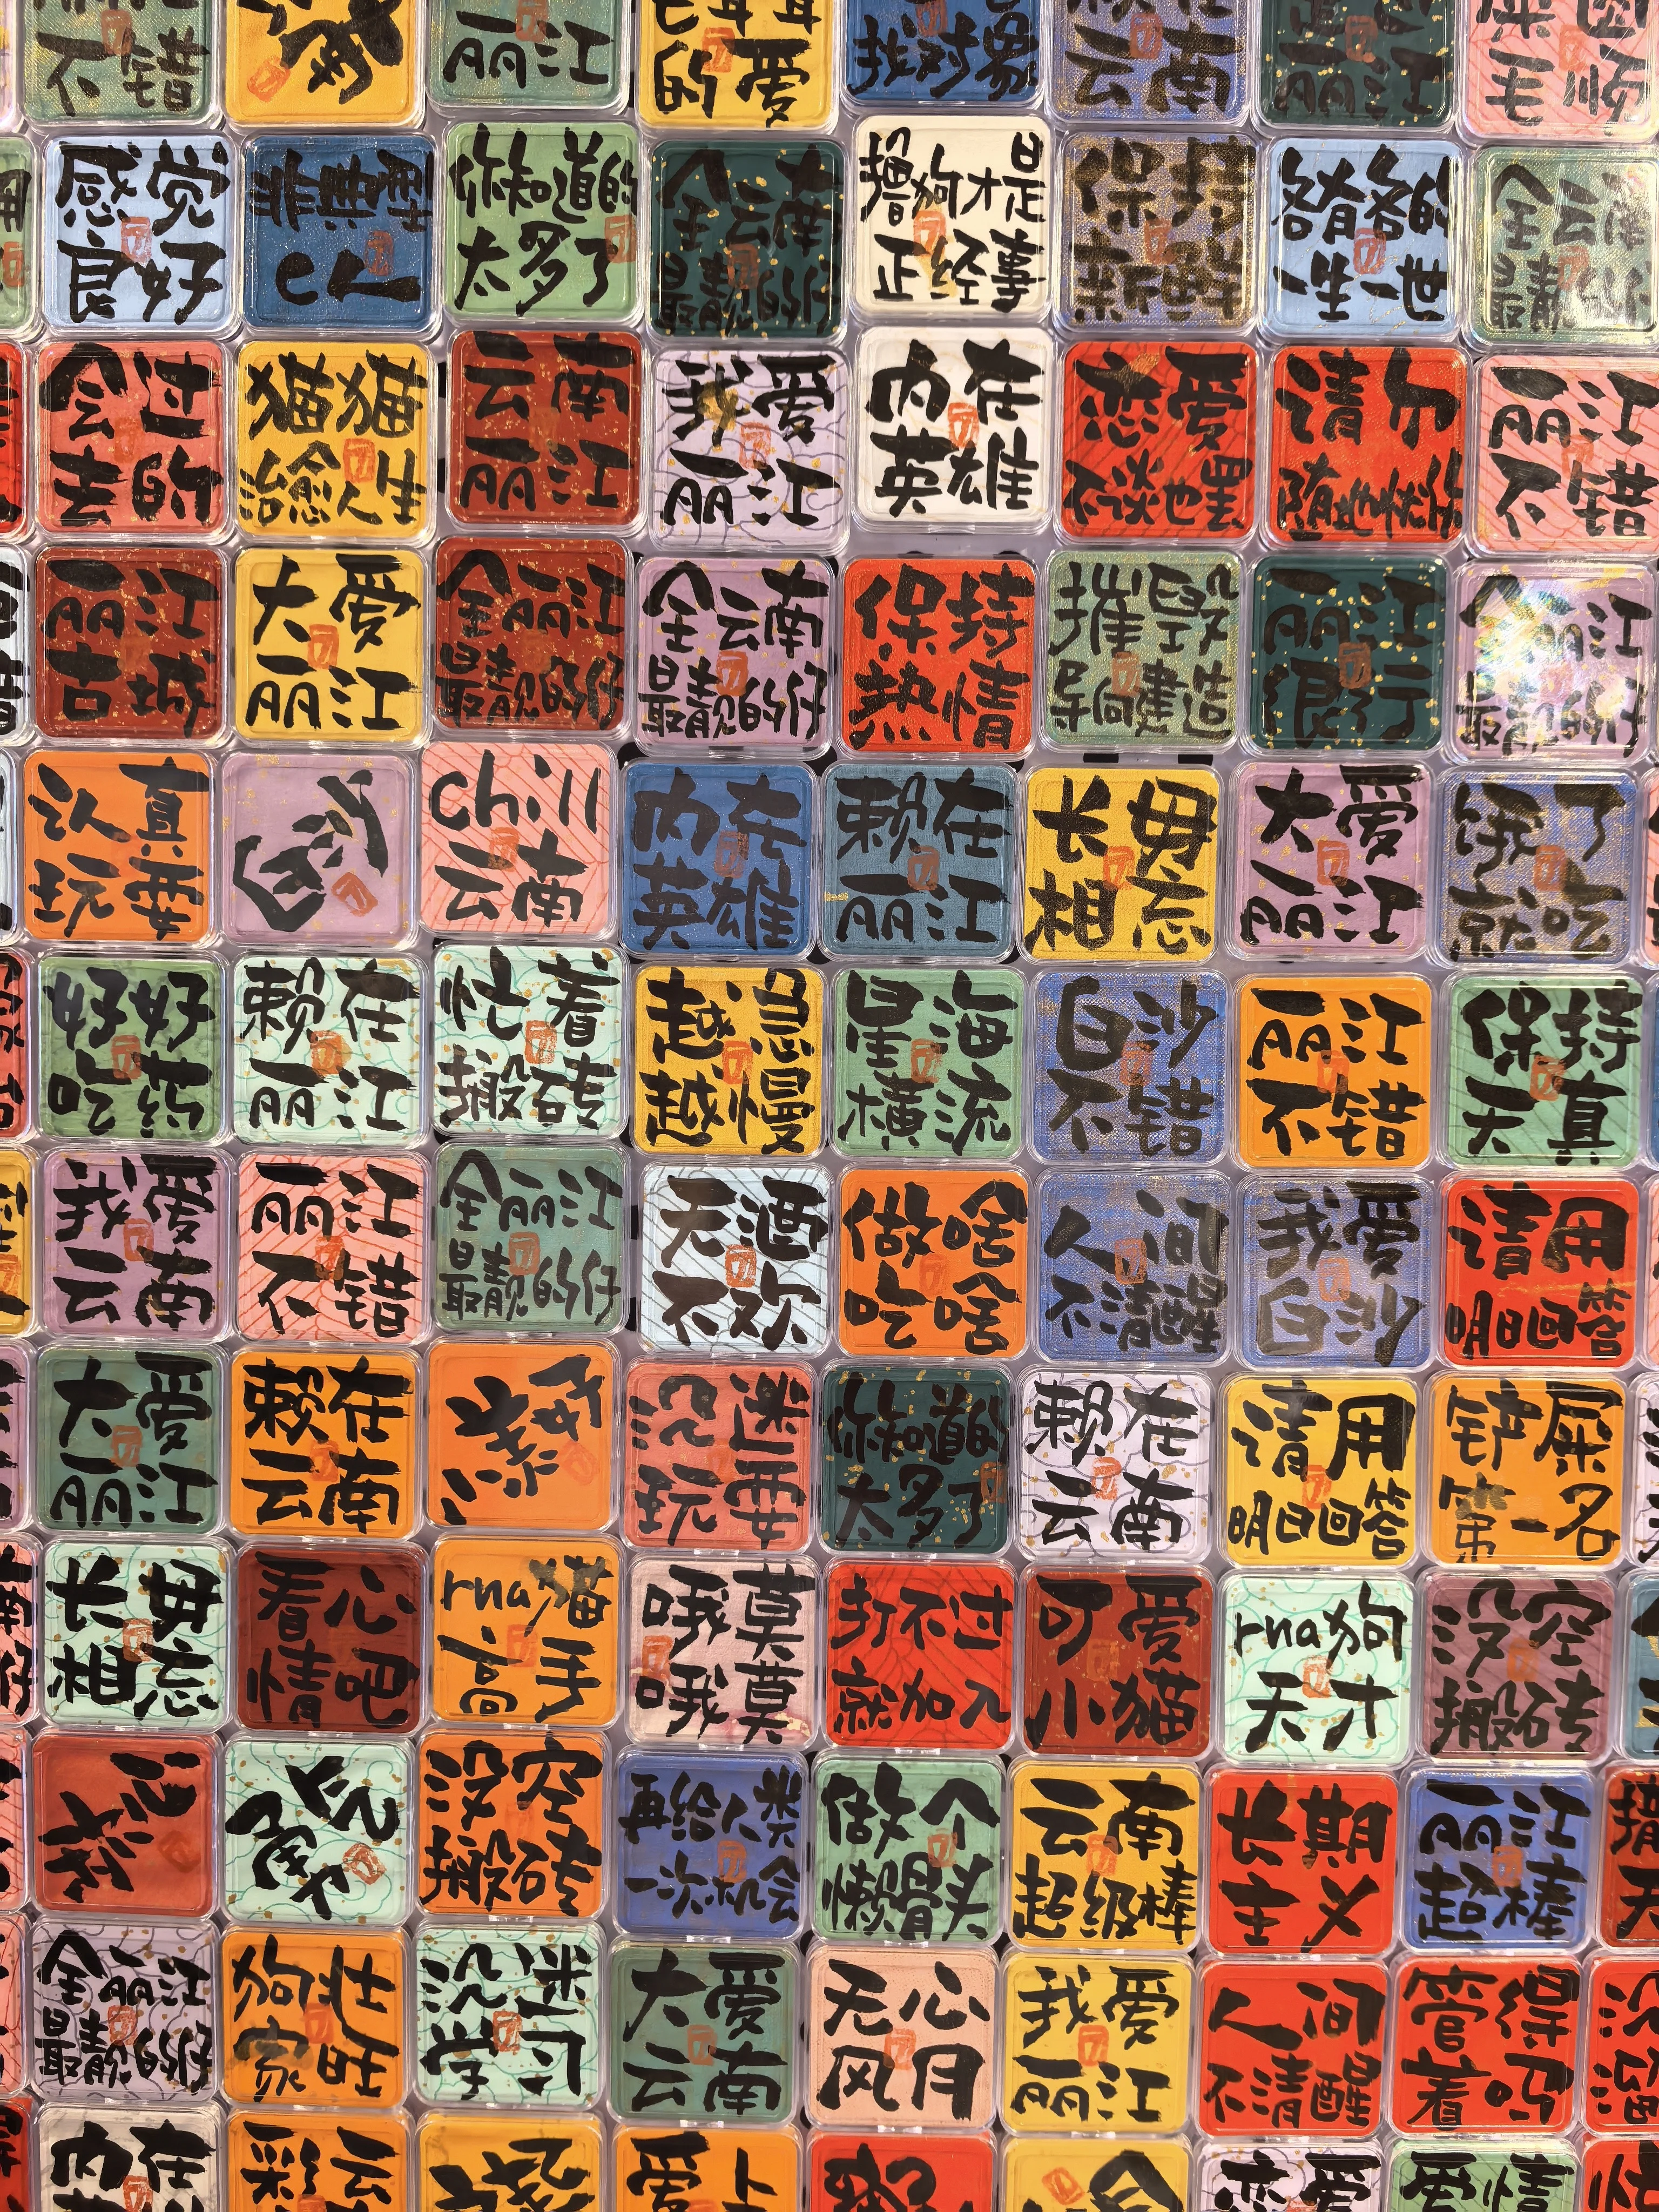 不错
丽江
的爱
找对象
云南
丽江
毛顺
感觉
良好
你知道的
太多了
全云南
最靓的仔
撸狗才是
正经事
保持
新鲜
一生一世
全云南
最靓的仔
会过
去的
猫猫
治愈人生
云南
丽江
我爱
丽江
内在
英雄
恋爱
不谈也罢
请尔
丽江
不错
丽江
古城
大爱
丽江
全丽江
最靓的仔
全云南
最靓的仔
保持
热情
摧毁
导向建造
丽江
很行
全丽江
最靓的仔
认真
玩耍
chill
云南
内在
英雄
赖在
丽江
长毋
相忘
大爱
丽江
饿了
就吃
好好
吃药
赖在
丽江
忙着
搬砖
越急
越慢
星海
横流
白沙
不错
丽江
不错
保持
天真
我爱
云南
丽江
不错
全丽江
最靓的仔
无酒
不欢
做啥
吃啥
人间
不清醒
我爱
白沙
请用
明日回答
大爱
丽江
赖在
云南
沉迷
玩耍
你知道的
太多了
赖在
云南
请用
明日回答
铲屎
第一名
长毋
相忘
看心
情吧
rua猫
高手
哦莫
哦莫
打不过
就加入
可爱
小猫
rua狗
天才
没空
搬砖
没空
搬砖
再给人类
一次机会
做个
懒骨头
云南
超级棒
长期
主义
丽江
超棒
全丽江
最靓的仔
狗壮
家旺
沉迷
学习
大爱
云南
无心
风月
我爱
丽江
人间
不清醒
管得
着吗
内在
彩云
爱上
恋爱
爱情